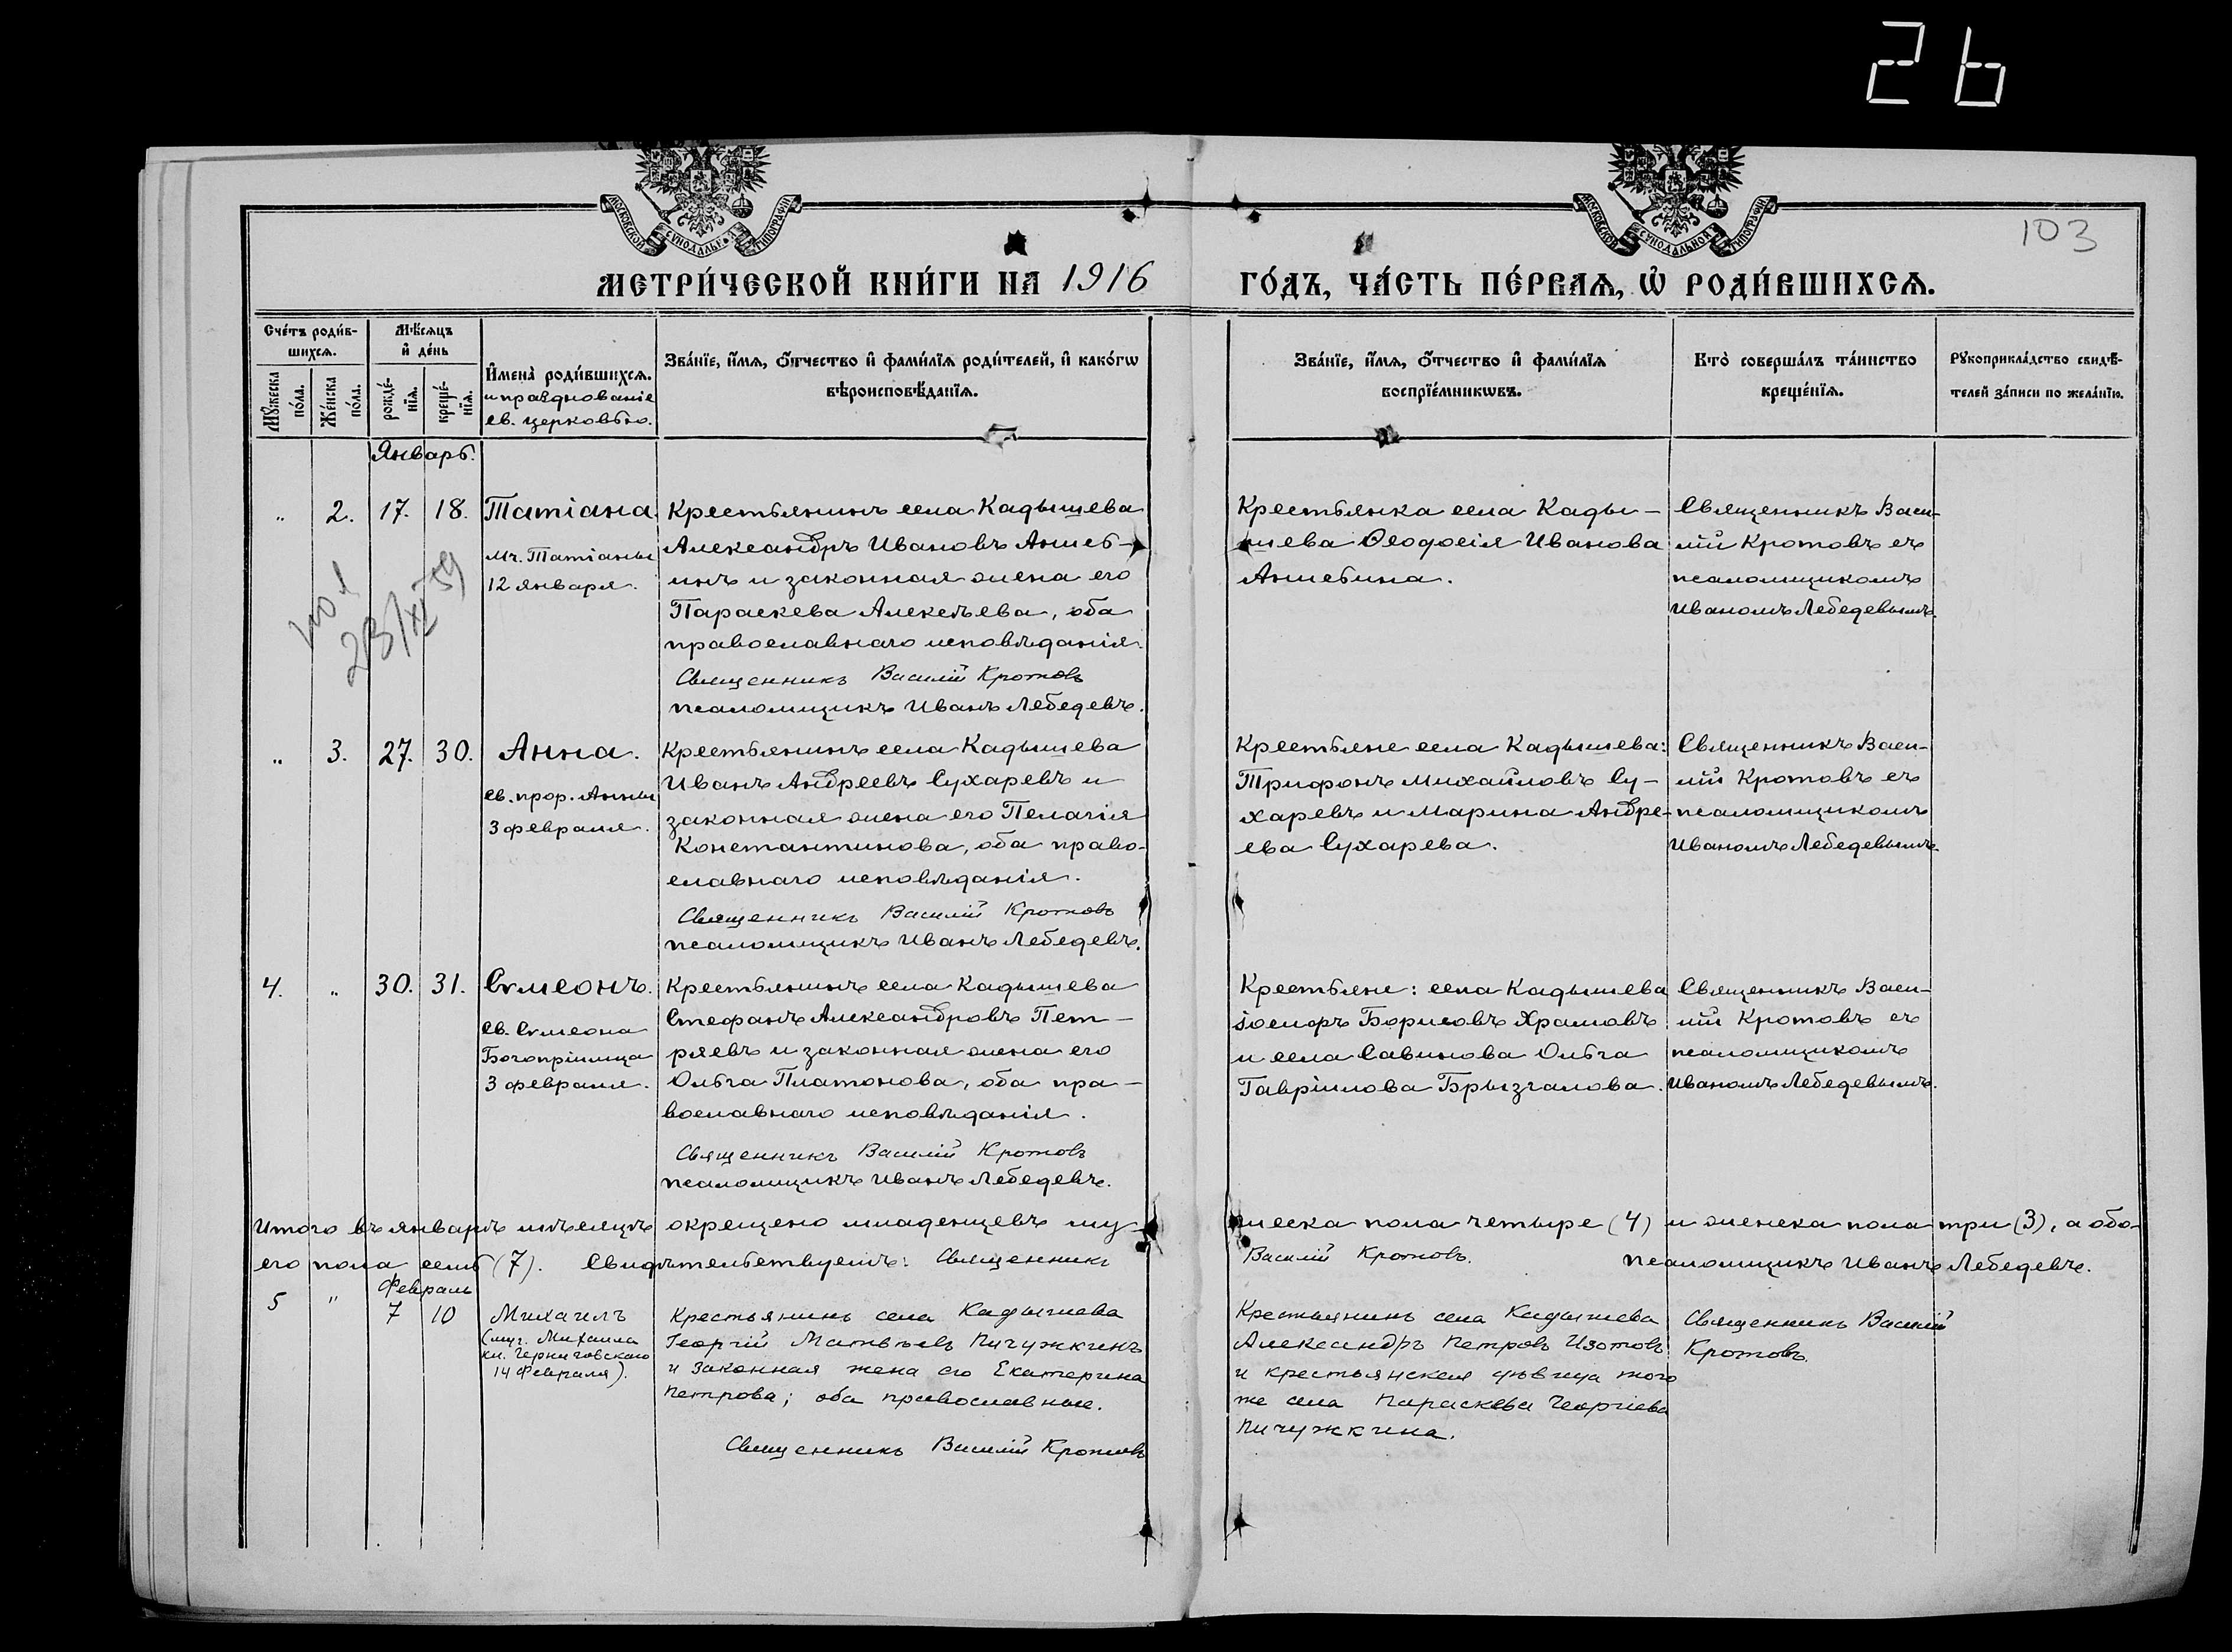 26
103
МОСКОВСКОЙ СѴНОДАЛЬНОЙ ТИПОГРАФІИ
МОСКОВСКОЙ СѴНОДАЛЬНОЙ ТИПОГРАФІИ
МЕТРИ́ЧЕСКОЙ КНИ́ГИ НА 1916 ГО́ДЪ, ЧА́СТЬ ПЕ́РВАѦ, Ѡ҆ РОДИ́ВШИХСѦ.
Сче́тъ роди́в-
шихсѧ.
Мꙋ́жеска по́ла.
Же́нска по́ла.
Мѣ́сѧцъ
и҆ де́нь
рожде́-
нїѧ.
креще́-
нїѧ.
И҆мена̀ роди́вшихсѧ.
и празднованіе
св. церковью.
Зва́нїе, и҆́мѧ, ѻ҆́тчество и҆ фами́лїѧ роди́телей, и҆ како́гѡ
вѣроисповѣ́данїѧ.
Зва́нїе, и҆́мѧ, ѻ҆́тчество и҆ фами́лїѧ
воспрїе́мникѡвъ.
Кто̀ соверша́лъ та́инство
креще́нїѧ.
Рꙋкоприкла́дство свидѣ́-
телей за́писи по жела́нїю.
Январь.
" 2. 17. 18. Татіана
мч. Татіаны
12 января.
23/XI 59
Крестьянинъ села Кадышева
Александръ Ивановъ Аншеб-
инъ и законная жена его
Параскева Алексѣева, оба
православнаго исповѣданія.
Священникъ Василій Кротовъ
псаломщикъ Иванъ Лебедевъ.
Крестьянка села Кады-
шева Ѳеодосія Иванова
Аншебина.
Священникъ Васи-
лій Кротовъ съ
псаломщикомъ
Иваномъ Лебедевымъ.
" 3. 27. 30. Анна.
св. прор. Анны
3 февраля.
Крестьянинъ села Кадышева
Иванъ Андреевъ Сухаревъ и
законная жена его Пелагія
Константинова, оба право-
славнаго исповѣданія.
Священникъ Василій Кротовъ
псаломщикъ Иванъ Лебедевъ.
Крестьяне села Кадышева:
Трифонъ Михайловъ Су-
харевъ и Марина Андре-
ева Сухарева.
Священникъ Васи-
лій Кротовъ съ
псаломщикомъ
Иваномъ Лебедевымъ.
4. " 30. 31. Сѵмеонъ.
св. Сѵмеона
Богопріимца
3 февраля.
Крестьянинъ села Кадышева
Стефанъ Александровъ Пет-
ряевъ и законная жена его
Ольга Платонова, оба пра-
вославнаго исповѣданія.
Священникъ Василій Кротовъ
псаломщикъ Иванъ Лебедевъ.
Крестьяне: села Кадышева
Іосифъ Борисовъ Храмовъ
и села Савинова Ольга
Гавріилова Брызгалова.
Священникъ Васи-
лій Кротовъ съ
псаломщикомъ
Иваномъ Лебедевымъ.
Итого въ январѣ мѣсяцѣ окрещено младенцевъ му-
жеска пола четыре (4) и женска пола три (3), а обо-
его пола семь (7). Свидѣтельствуемъ: Священникъ
Василій Кротовъ. псаломщикъ Иванъ Лебедевъ.
Февраль
5 " 7 10 Михаилъ
(муч. Михаила
кн. Черниговскаго
14 Февраля).
Крестьянинъ села Кадышева
Георгій Матвѣевъ Пичужкинъ
и законная жена его Екатерина
Петрова; оба православные.
Священникъ Василій Кротовъ
Крестьянинъ села Кадышева
Александръ Петровъ Изотовъ
и крестьянская дѣвица того
же села Параскева Георгіева
Пичужкина.
Священникъ Василій
Кротовъ.